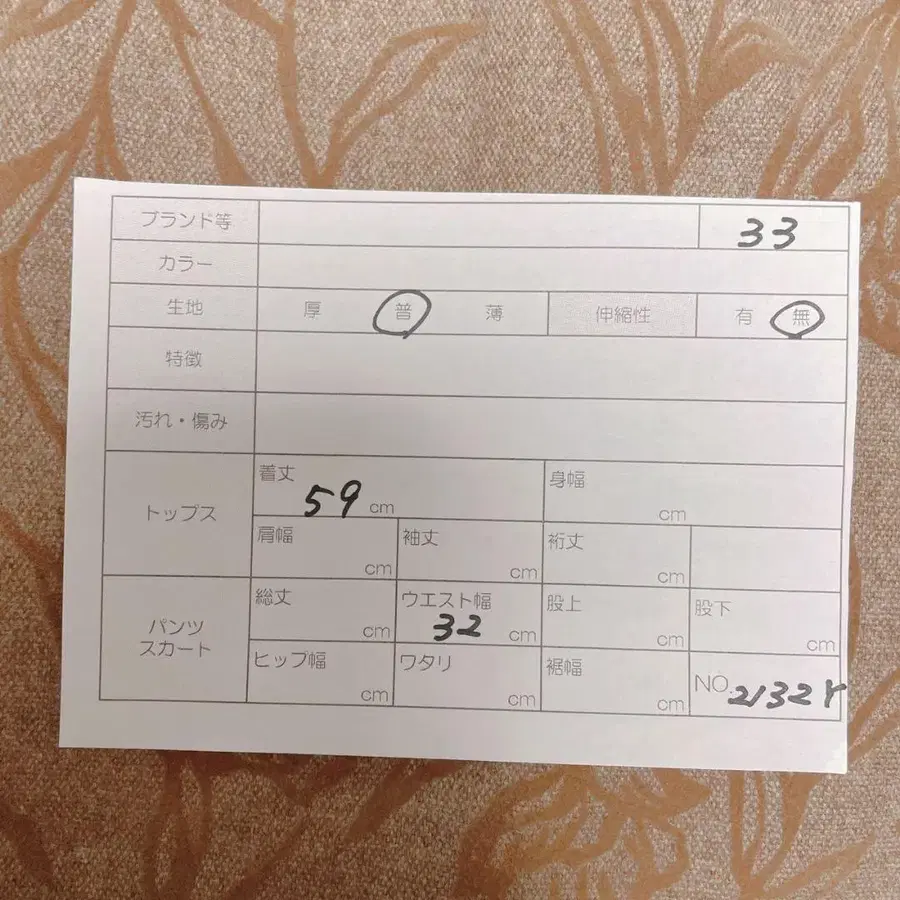 ブランド等 33
カラー
生地 厚 普 薄 伸縮性 有 無
特徴
汚れ・傷み
トップス
着丈 59 cm 身幅 cm
肩幅 cm 袖丈 cm 裄丈 cm
パンツ
スカート
総丈 cm ウエスト幅 32 cm 股上 cm 股下 cm
ヒップ幅 cm ワタリ cm 裾幅 cm NO. 2132Y